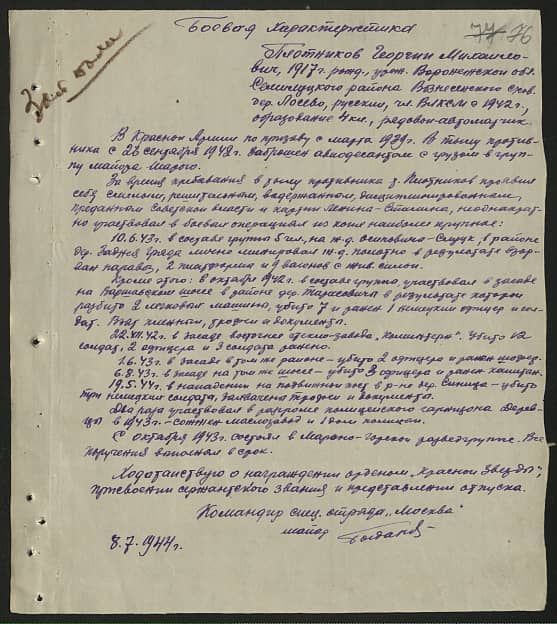 Боевая характеристика
77 76
Плотников Георгий Михайло-
вич, 1917 г. рожд., урож. Воронежской обл.
района Вознесенского
дер. Лосево, русский, чл. ВЛКСМ с 1942 г.,
образование 4 кл., рядовой-автоматчик.
В Красной Армии по призыву с марта 1939г. В тылу против-
ника с 26 сентября 1942 г. заброшен авиадесантом с грузом в груп-
пу майора
За время пребывания в тылу противника т. Плотников проявил
себя смелым, решительным, выдержанным, дисциплинированным,
преданным Советской власти и партии Ленина-Сталина, неоднократ-
но участвовал в боевых операциях из коих наиболее крупные:
10.6.43г. в составе группы 5 чел., на ж.д. Осиповичи-Слуцк, в районе
дер. Гряда лично минировал ж.д. полотно в результате взор-
ван паровоз, 2 платформы и 9 вагонов с жив. силой.
Кроме этого: в октябре 1942г. в составе группы участвовал в засаде
на Варшавском шоссе в районе дер. Тарасовичи в результате которой
разбито 2 легковых машины, убито 7 и ранен 1 немецкий офицер и сол-
дат. Взят пленный, трофеи и документы.
22.XII.42г. в засаде завода „Коминтерн". Убито 12
солдат, 2 офицера и 3 солдата ранено.
1.6.43г. в засаде в том же районе - убито 2 офицера и ранен шофер.
6.8.43г. в засаде на том же шоссе - убито 3 офицера и ранен капитан.
19.5.44г. в нападении на подвижный пост в р-не дер. Синица - убито
три немецких солдата, захвачены трофеи и документы.
Два раза участвовал в разгроме полицейского гарнизона
в 1943г. - сожжен маслозавод и 1 дом полиции.
С октября 1943г. состоял в Марьино-горской разведгруппе. Все
поручения выполнял в срок.
Ходатайствую о награждении орденом „Красной Звезды",
присвоении сержантского звания и представлении отпуска.
Командир спец. отряда „Москва"
майор
8.7.1944г.